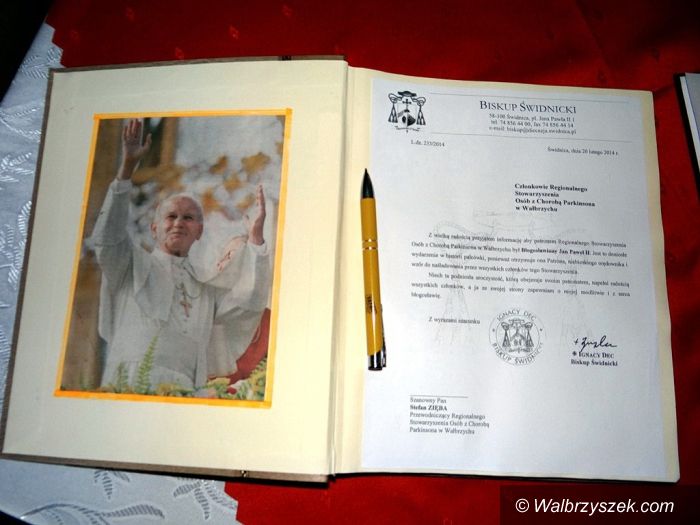 BISKUP ŚWIDNICKI
58-100 Świdnica, pl. Jana Pawła II 1
tel. 74 856 44 00, fax 74 856 44 14
e-mail: biskup@diecezja.swidnica.pl
L.dz. 233/2014
Świdnica, dnia 20 lutego 2014 r.
Członkowie Regionalnego
Stowarzyszenia
Osób z Chorobą Parkinsona
w Wałbrzychu
Z wielką radością przyjąłem informację aby patronem Regionalnego Stowarzyszenia
Osób z Chorobą Parkinsona w Wałbrzychu był Błogosławiony Jan Paweł II. Jest to doniosłe
wydarzenie w historii placówki, ponieważ otrzymuje ona Patrona, niebieskiego orędownika i
wzór do naśladowania przez wszystkich członków tego Stowarzyszenia.
Niech ta podniosła uroczystość, którą obejmuję swoim patronatem, napełni radością
wszystkich członków, a ja ze swojej strony zapewniam o mojej modlitwie i z serca
błogosławię.
Z wyrazami szacunku
IGNACY DEC
BISKUP ŚWIDNICKI
✠ IGNACY DEC
Biskup Świdnicki
Szanowny Pan
Stefan ZIĘBA
Przewodniczący Regionalnego
Stowarzyszenia Osób z Chorobą
Parkinsona w Wałbrzychu
© Walbrzyszek.com